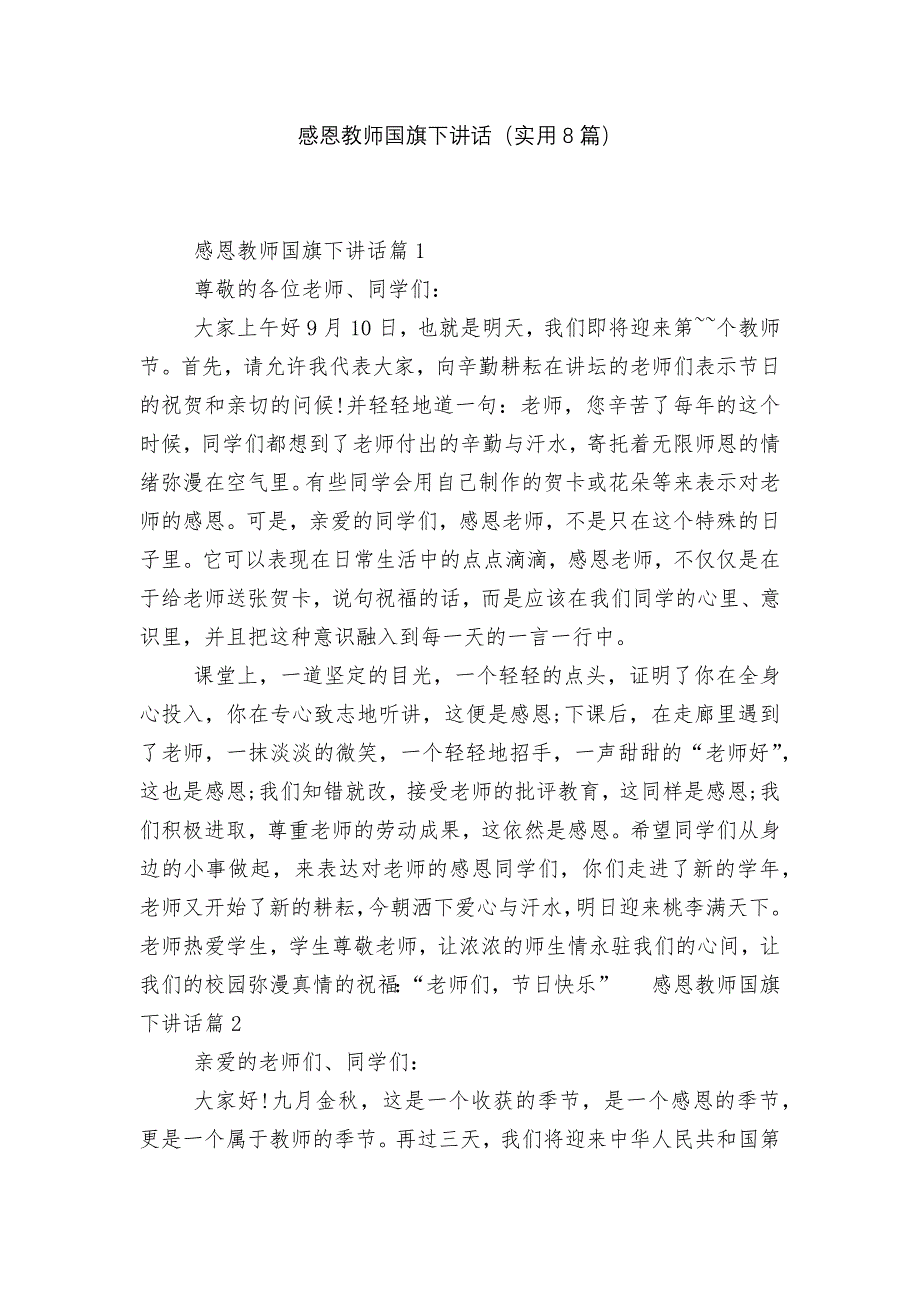 感恩教师国旗下讲话（实用8篇）
感恩教师国旗下讲话篇1
尊敬的各位老师、同学们：
大家上午好9月10日，也就是明天，我们即将迎来第~~个教师
节。首先，请允许我代表大家，向辛勤耕耘在讲坛的老师们表示节日
的祝贺和亲切的问候!并轻轻地道一句：老师，您辛苦了每年的这个
时候，同学们都想到了老师付出的辛勤与汗水，寄托着无限师恩的情
绪弥漫在空气里。有些同学会用自己制作的贺卡或花朵等来表示对老
师的感恩。可是，亲爱的同学们，感恩老师，不是只在这个特殊的日
子里。它可以表现在日常生活中的点点滴滴，感恩老师，不仅仅是在
于给老师送张贺卡，说句祝福的话，而是应该在我们同学的心里、意
识里，并且把这种意识融入到每一天的一言一行中。
课堂上，一道坚定的目光，一个轻轻的点头，证明了你在全身
心投入，你在专心致志地听讲，这便是感恩;下课后，在走廊里遇到
了老师，一抹淡淡的微笑，一个轻轻地招手，一声甜甜的“老师好”，
这也是感恩;我们知错就改，接受老师的批评教育，这同样是感恩;我
们积极进取，尊重老师的劳动成果，这依然是感恩。希望同学们从身
边的小事做起，来表达对老师的感恩同学们，你们走进了新的学年，
老师又开始了新的耕耘，今朝洒下爱心与汗水，明日迎来桃李满天下。
老师热爱学生，学生尊敬老师，让浓浓的师生情永驻我们的心间，让
我们的校园弥漫真情的祝福：“老师们，节日快乐” 感恩教师国旗
下讲话篇2
亲爱的老师们、同学们：
大家好!九月金秋，这是一个收获的季节，是一个感恩的季节，
更是一个属于教师的季节。再过三天，我们将迎来中华人民共和国第